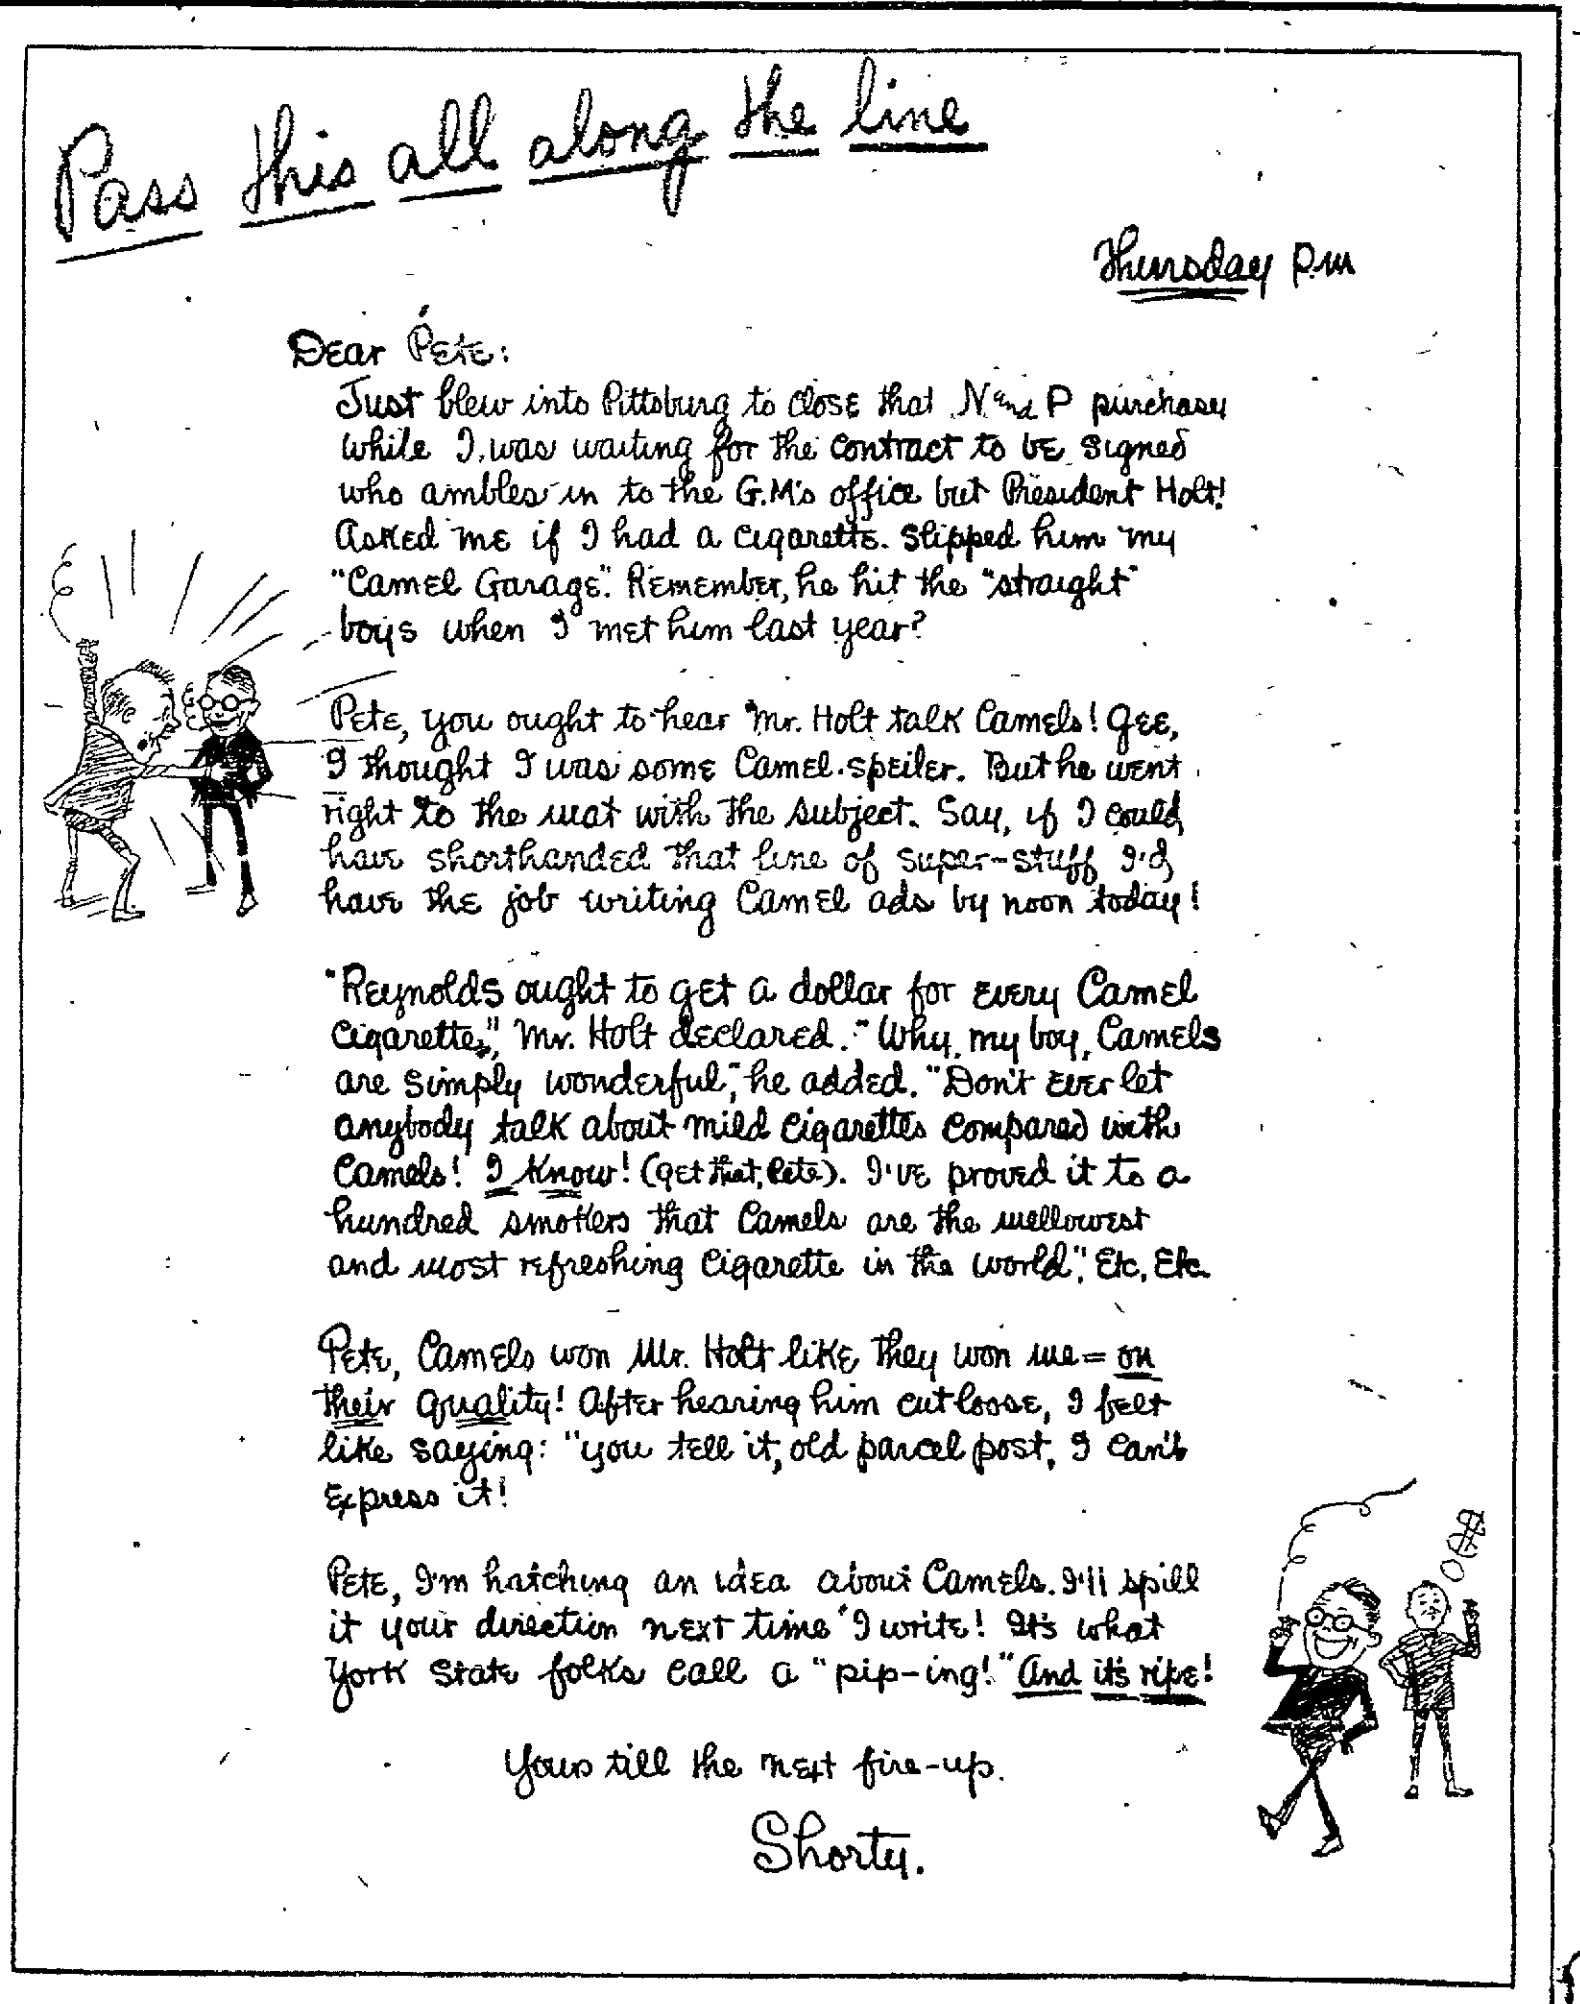 Pass this all along the line
Thursday P.M
Dear Pete:
Just blew into Pittsburg to close that N and P purchase
while I was waiting for the contract to be signed
who ambles in to the G.M's office but President Holt!
Asked me if I had a cigarette. Slipped him my
"Camel Garage". Remember, he hit the "straight"
boys when I met him last year?
Pete, you ought to hear Mr. Holt talk Camels! Gee,
I thought I was some Camel speiler. But he went
right to the mat with the subject. Say, if I could
have shorthanded that line of super-stuff I'd
have the job writing Camel ads by noon today!
"Reynolds ought to get a dollar for every Camel
cigarette," Mr. Holt declared. "Why, my boy, Camels
are simply wonderful," he added. "Don't ever let
anybody talk about mild cigarettes compared with
Camels! I know! (get that, Pete). I've proved it to a
hundred smokers that Camels are the mellowest
and most refreshing cigarette in the world". Etc, Etc.
Pete, Camels won Mr. Holt like they won me = on
their quality! After hearing him cut loose, I felt
like saying: "you tell it, old parcel post, I can't
express it!
Pete, I'm hatching an idea about Camels. I'll spill
it your direction next time I write! It's what
York State folks call a "pip-ing!" And it's ripe!
Yours till the next fire-up.
Shorty.